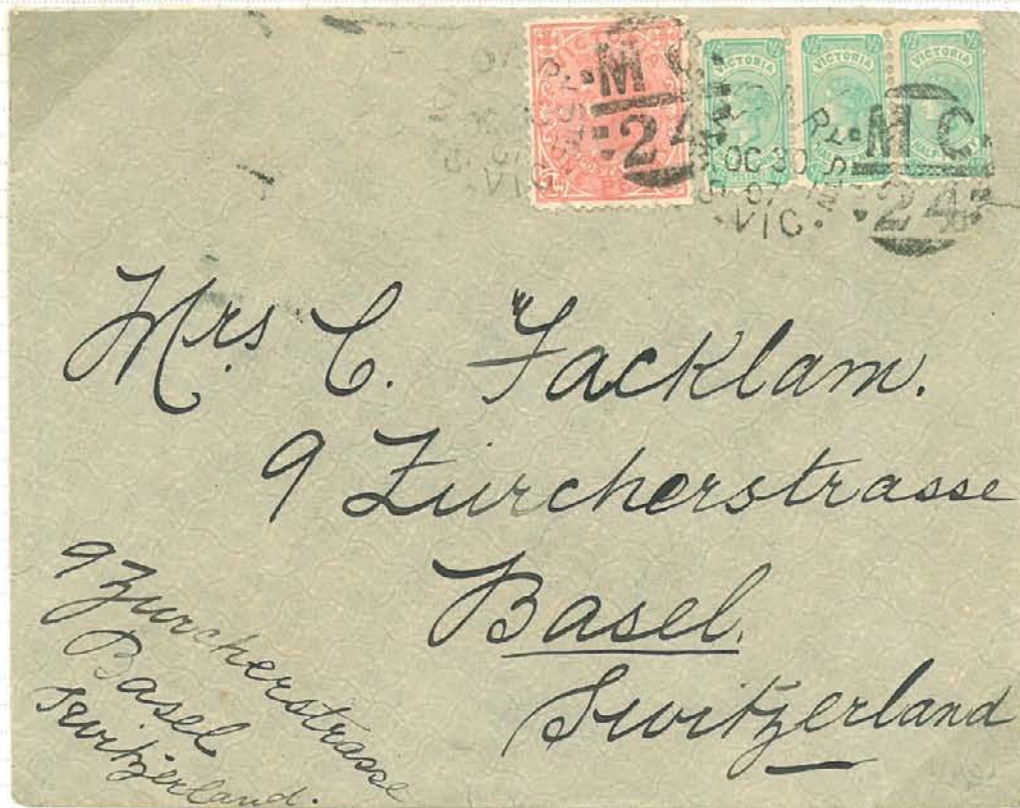 VICTORIA VICTORIA VICTORIA
M C
24
M C
24
OC 30
07
VIC
Mrs C. Facklam.
9 Zurcherstrasse
Basel.
Switzerland
9 Zurcherstrasse
Basel
Switzerland.